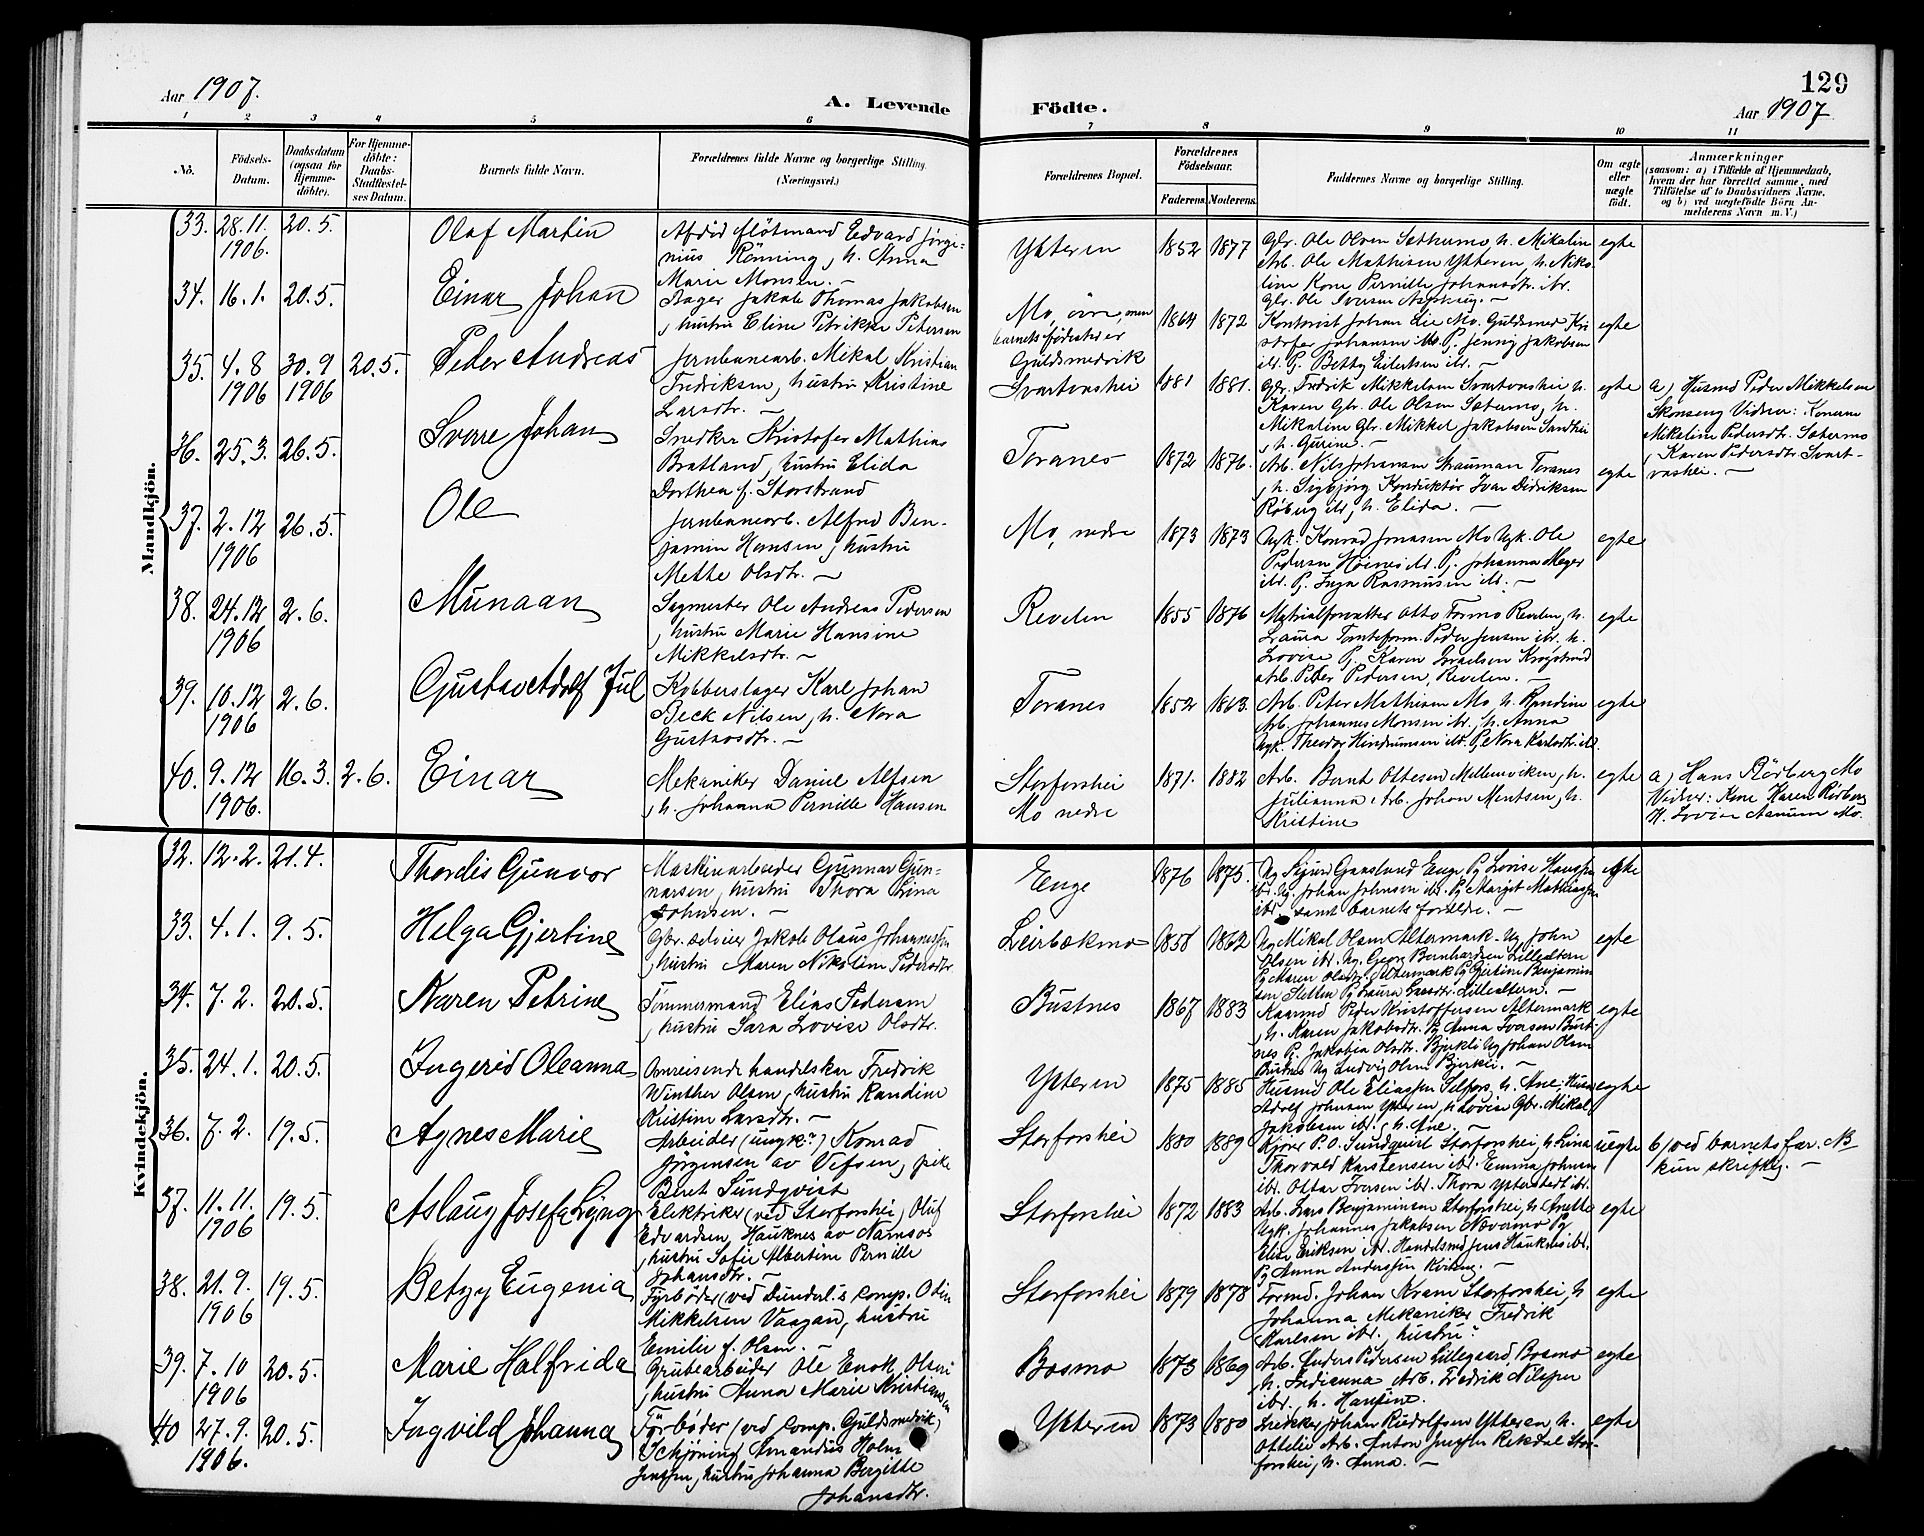 129
Aar 1907.
A. Levende
Födte.
Aar 1907
1 2 3 4 5 6 7 8 9 10 11
No.
Födsels-
Datum.
Daabsdatum
(ogsaa for
Hjemme-
döbte).
For Hjemme-
döbte:
Daabs-
Stadfæstel-
ses Datum.
Barnets fulde Navn.
Forældrenes fulde Navne og borgerlige Stilling.
(Næringsvei.)
Forældrenes Bopæl.
Forældrenes
Födselsaar.
Faderens. Moderens.
Faddernes Navne og borgerlige Stilling.
Om ægte
eller
uægte
födt.
Anmærkninger
(saasom: a) i Tilfælde af Hjemmedaab,
hvem der har forrettet samme, med
Tilföielse af to Daabsvidners Navne,
og b) ved uægtefödte Börn An-
melderens Navn m. V.)
Mandkjön.
33. 28.11. 1906. 20.5.
Olaf Martin
Afdöd flötmand Edvard Jörgi-
nius Rönning, h. Anna
Marie Monsen. —
Ytteren 1852 1877
Gbr. Ole Olsen Sæthermo, h. Mikaline
Arb. Ole Mathisen Ytteren, h. Niko-
line Kone Pernille Johansdtr. ibr.
Gbr. Ole Iversen
egte
34. 16.1. 20.5.
Einar Johan
Jakob Thomas Jakobsen
, hustru Eline Petrikke Petersen
Mo, övre, men
barnets födested er
Guldsmedvik
1864 1872
Kontorist Johan Lie Mo. Guldsmed Kri
stofer Johansen ibr. P. Jenny Jakobsen
ibr. P. Betty Eilertsen ibr. —
egte
35. 4.8 1906 30.9 1906 20.5.
Peder Andreas
Jernbanearb. Mikal Kristian
Fredriksen, hustru Kristine
Larsdtr. —
Svartvashei 1881 1881.
Gbr. Fredrik Mikkelsen Svartvashei h.
Karen Gbr. Ole Olsen Sætermo, h.
Mikaline Gbr. Mikkel Jakobsen Sandhei
, h. Gurine. —
egte
a) Husmd Peder Mikkelsen
Skonseng Vidner: Konerne
Mikaline Pedersdtr. Sætermo
, Karen Pedersdtr. Svart-
vashei. —
36. 25.3. 26.5.
Sverre Johan
Snedker Kristofer Mathias
Bratland, hustru Elida
Dorthea f. Storstrand
Toranes 1872 1876.
Arb. Nils Johansen Strauman Toranes
, h. Sigbjörg Konduktör Ivar Didriksen
Röberg ibr, h. Elida. —
egte
37. 2.12 1906 26.5.
Ole
Jernbanearb. Alfred Ben-
jamin Hansen, hustru
Mette Olsdtr. —
Mo, nedre 1873 1873
Ugk. Konrad Jonasen Mo Ugk. Ole
Pedersen ibr. P. Johanna Meyer
ibr. P. Inga Rasmusen ibr. —
egte
38. 24.12 1906 2.6.
Munaan
Sagmester Ole Andreas Pedersen
, hustru Marie Hansine
Mikkelsdtr. —
Revelen 1855 1876
Matrialforvalter Otto Formo Revelen, h.
Laura Peder Jensen ibr. h.
Lovise P. Karen Israelsen
Arb. Peder Pedersen, Revelen. —
egte
39. 10.12 1906 2.6.
Gustav Adolf Jul
Kobberslager Karl Johan
Beck Nilsen, h. Nora
Gustavsdtr. —
Toranes 1852 1863.
Arb. Peter Mathisen Mo h. Randine
Arb. Johannes Monsen ibr., h. Anna
Ugk. Theodor Hindrumsen ibr. P. Nora Karlsdtr ibr.
egte
40. 9.12 1906. 16.3. 2.6.
Einar
Mekaniker Daniel Alfsen
, h. Johanna Pernille Hansen
Storforshei
Mo nedre
1871. 1882
Arb. Bernt Ottesen Mellemviken, h.
Julianna, Arb. Johan Mentsen, h.
Kristine
egte
a) Hans Rörberg Mo
Vidner: Kone Karen Rörberg
H. Lovise Aanum Mo.
Kvindekjön.
32. 12.2. 21.4.
Thordis Gunvor
Maskinarbeider Gunnar Gun-
narsen, hustru Thora Lina
Johnsen. —
Enge 1876 1875.
Ug. Sigurd Enge Pg Lovise Hansen
ibr. Ug. Johan Johnsen ibr. Pg Margit Mathiassen
ibr. samt barnets forældre. —
egte
33. 4.1. 9.5.
Helga Gjertine
Gbr. sedvier Jakob Olaus Johannessen
, hustru Maren Nikoline Pedersdtr.
Leirbækmo 1858 1862
Ug Mikal Olsen Altermark. Ug. John
Olsen ibr. Ug. Georg Bernhardsen Lillealteren
Pg Maren Olsdtr. Altermark Pg Gjertine Benjamin
sen Sletten Pg Laura Larsdtr. Lillealteren. —
egte
34. 7.2. 20.5.
Karen Petrine
Tömmermand Elias Pedersen
, hustru Sara Lovise Olsdtr.
Bustnes 1867 1883
Kaarmd Peder Kristoffersen Altermark
, h. Karen Jakobsdtr. Pg Anna Iversen Bust-
nes P. Jakobia Olsdtr. Bjerkli Ug Johan Olsen
Bustnes Ug Ludvig Olsen Bjerkli. —
egte
35. 24.1. 20.5.
Ingerid Oleanna
Omreisende handelskar Fredrik
Winther Olsen, hustru Randine
Kristine Larsdtr. —
Ytteren 1875 1885
Husmd Ole Eliassen Selfors, h. Ane. Husm
Adolf Johnsen Ytteren, h Lovise Gbr. Mikal
Jakobsen ibr., h. Ane. —
egte
36. 7.2. 19.5.
Agnes Marie
Arbeider (ungk?) Konrad
Jörgensen av Vefsen, pike
Beret Sundqvist
Storforshei 1880 1889
Kjörer P.O. Sundquist Storforshei, h Lina
Thorvald Karstensen ibr. Emma Johnsen
ibr. Ottar Iversen ibr. Thora Ytterstedt ibr.
uegte
b) ved barnets far. NB
kun skriftlig. —
37. 11.11. 1906 19.5.
Aslaug Josefa Lyng
Elektriker (ved Storforshei) Oluf
Edvardsen, Hauknes av Namsos
, hustru Sofie Albertine Pernille
Johansdtr. —
Storforshei 1872 1883
Arb. Lars Benjaminsen Storforshei, h Anette
Ugk. Johannes Jakobsen Nævermo Pg
Elise Eriksen ibr. Handelsmd Jens Hauknes ibr.
Pg Anna Anderssen —
egte
38. 21.9. 1906 19.5.
Betzy Eugenia
Fyrböder (ved Dunderl.'s Comp. Odin
Mikkelsen Vaagan, hustru
Emilie f. Olsen. —
Storforshei 1879 1878
Formd. Johan Kram Storforshei, h
Johanna Mekaniker Fredrik
Karlsen ibr., hustru:
egte
39. 7.10 1906 20.5.
Marie Halfrida
Grubearbeider Ole Enok Olsen
, hustru Anna Marie Kristiansen
Bosmo 1873 1869
Arb. Anders Pedersen Lillegaard, Bosmo
, h. Indianna Arb. Fredrik Nilssen
ibr., h. Hansine.
egte
40 27.9. 1906. 20.5.
Ingvild Johanna
Fyrböder (ved Comp. Guldsmedvik)
Schjöning Amandus Holm
Jenssen, hustru Johanna Bergitte
Johansdtr.
Ytteren 1873 1880
Snedker Johan Rudolfsen Ytteren, h.
Ottelie Arb. Anton Jenssen Rekdal Stor-
forshei, h. Anna. —
egte